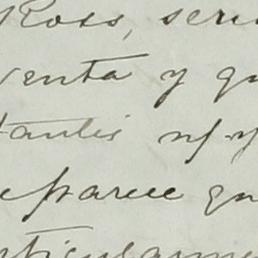 Ross, seri
venta y qu
tantis n/y
eparece qu
rticularme